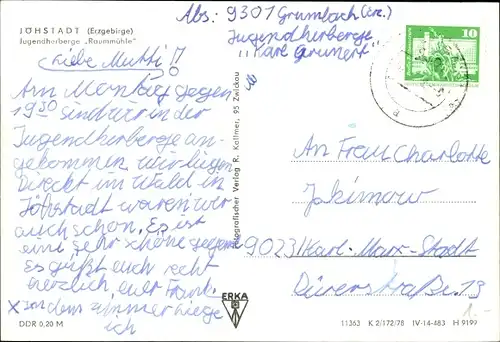 JÖHSTADT (Erzgebirge)
Jugendherberge „Raummühle"
Abs: 9301 Grumbach (Erz.)
Jugendherberge
"Karl Grunert"
Liebe Mutti!
Am Montag gegen
19 30 sind wir in der
Jugendherberge an-
gekommen. wir liegen
Direckt im Wald in
Jöhstadt waren wir
auch schon. Es ist
eine sehr schöne gegend
Es grüßt euch recht
herzlich, euer Frank
x in dem zimmer liege
ich
10
An Frau Charlotte
Jakimow
9023 Karl-Marx-Stadt
Dürerstraße 13
Fotografischer Verlag R. Kallmer, 95 Zwickau
ERKA
DDR 0,20 M
11363 K 2/172/78 IV-14-483 H 9199
1.-